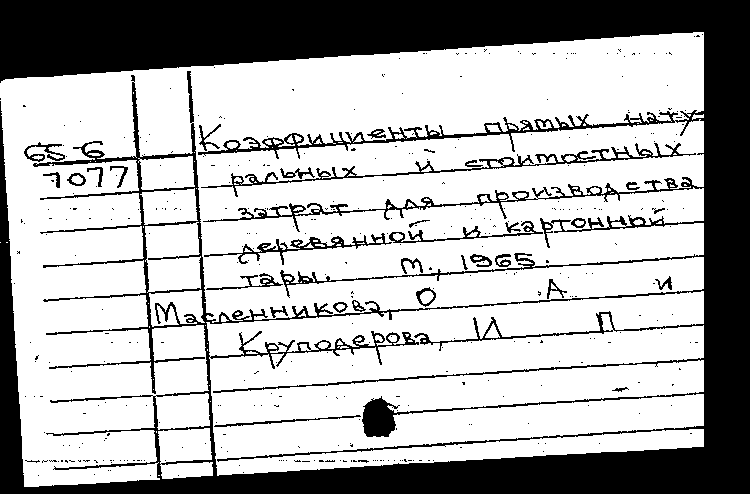 65-6
7077
Коэффициенты прямых нату-
ральных и стоимостных
затрат для производства
деревянной и картонной
тары. М., 1965.
Масленникова, О А и
Круподерова, И П